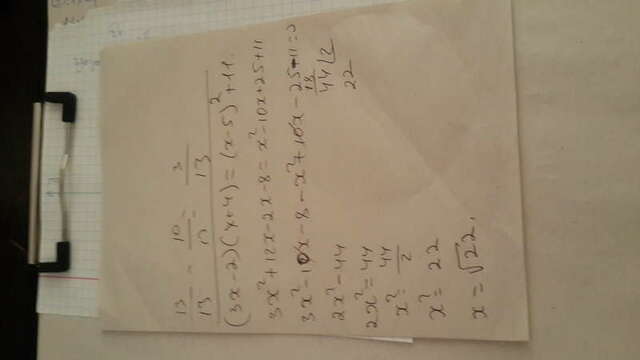 13/13 - 10/13 = 3/13
(3x-2)(x+4)=(x-5)²+11.
3x²+12x-2x-8=x²-10x+25+11
3x²-10x-8-x²+10x-25+11=0
2x²-44
2x²=44
x²=44/2
x²=22
x=√22.
18
44 2
22